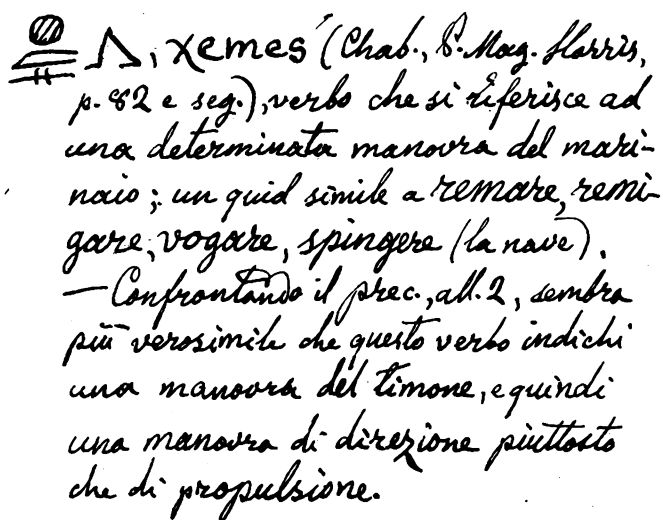 , xemes (Chab., P. Mag. Harris,
p. 82 e seg.), verbo che si riferisce ad
una determinata manovra del mari-
naio; un quid simile a remare, remi-
gare, vogare, spingere (la nave).
— Confrontando il prec., all. 2, sembra
più verosimile che questo verbo indichi
una manovra del timone, e quindi
una manovra di direzione piuttosto
che di propulsione.